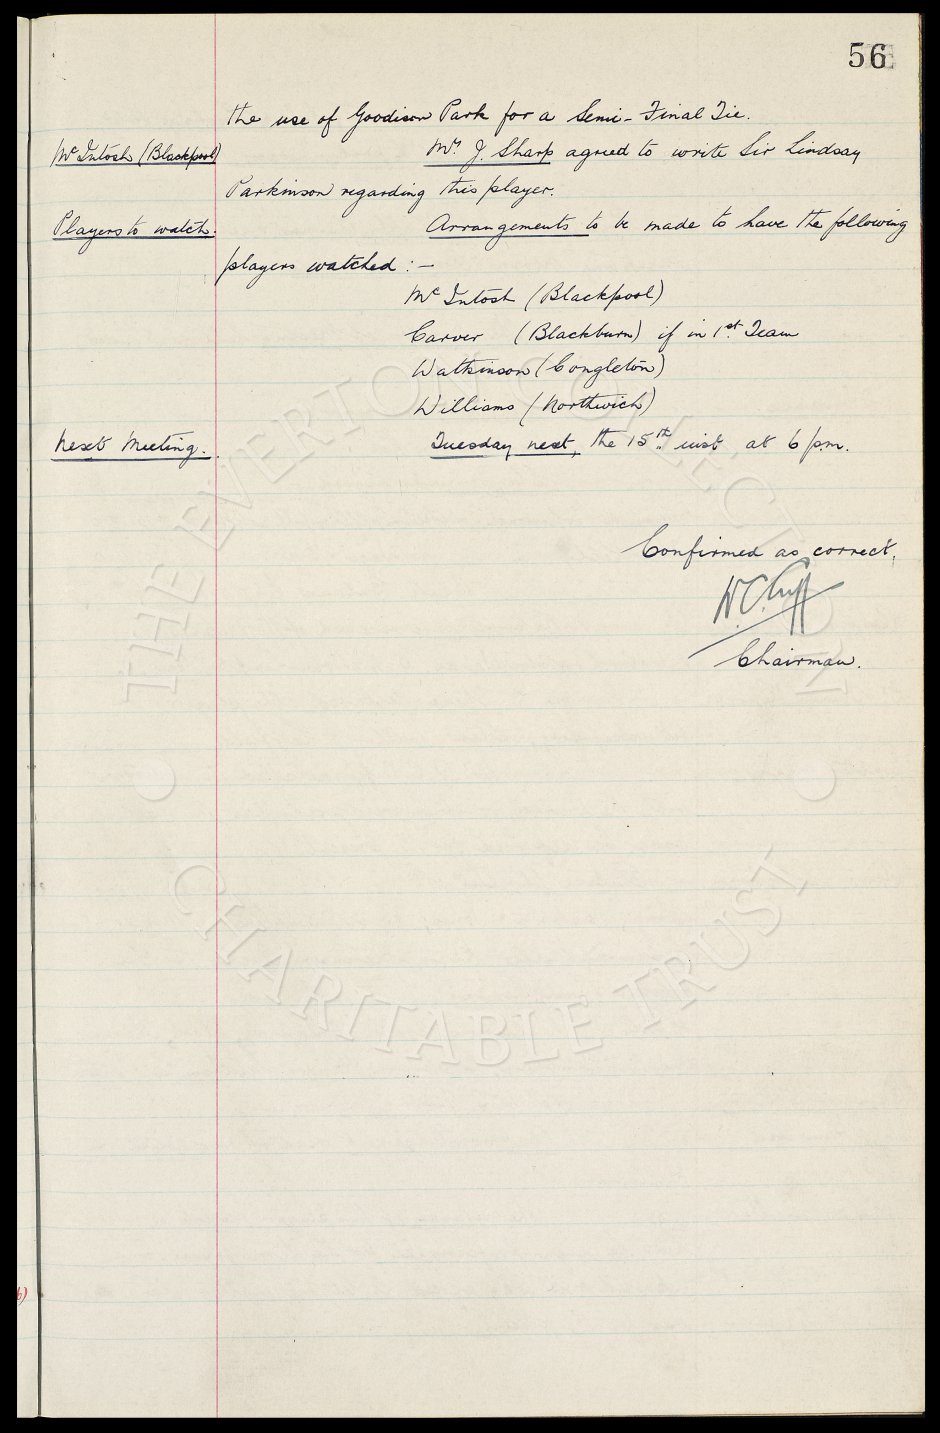 56
the use of Goodison Park for a Semi-Final Tie.
McIntosh (Blackpool) Mr. J. Sharp agreed to write Sir Lindsay
Parkinson regarding this player.
Players to watch. Arrangements to be made to have the following
players watched :-
McIntosh (Blackpool)
Carver (Blackburn) if in 1st. Team
Watkinson (Congleton)
Williams (Northwich)
Next Meeting. Tuesday next, the 15th. inst at 6 p.m.
Confirmed as correct,
W.C. Cuff
Chairman.
THE EVERTON COLLECTION
CHARITABLE TRUST